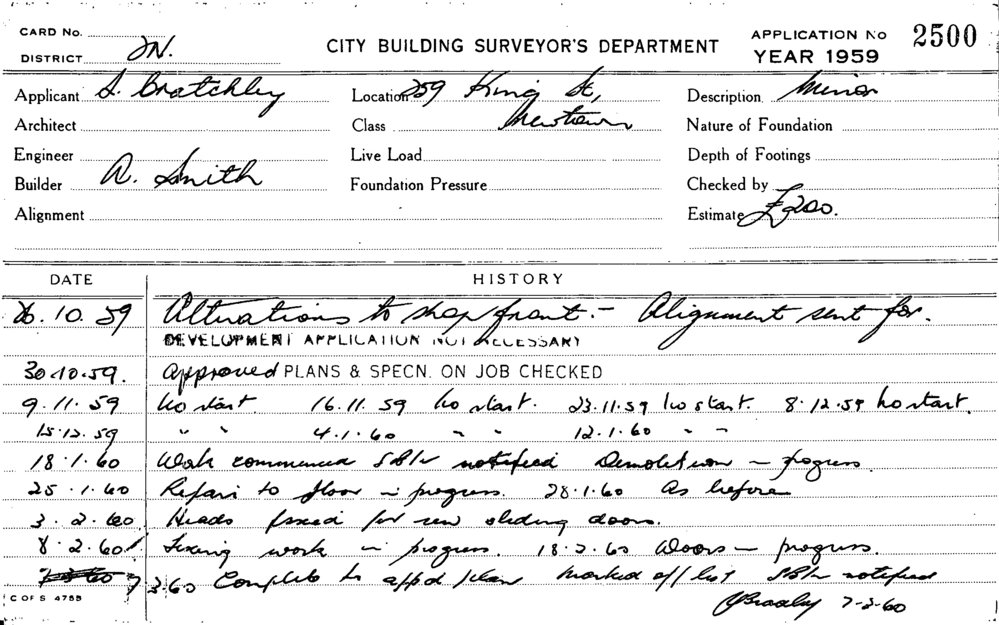 CARD No.
DISTRICT N.
CITY BUILDING SURVEYOR'S DEPARTMENT
APPLICATION No 2500
YEAR 1959
Applicant S. Bratchley Location 259 King St, Description Minor
Architect Class Newtown Nature of Foundation
Engineer Live Load Depth of Footings
Builder A. Smith Foundation Pressure Checked by
Alignment Estimate £200.
DATE HISTORY
26.10.59 Alterations to shop front. - Alignment sent for.
DEVELOPMENT APPLICATION NOT NECESSARY
30.10.59. Approved PLANS & SPECN. ON JOB CHECKED
9.11.59 No start. 16.11.59 No start. 23.11.59 No start. 8.12.59 No start.
15.12.59 " " 4.1.60 " " 12.1.60 " "
18.1.60 Work commenced notified Demolition in progress
25.1.60 Repairs to floor in progress. 28.1.60 As before
3.2.60 Heads fixed for new sliding doors.
8.2.60 Fixing work in progress. 18.2.60 Doors in progress.
7.3.60 Complete to appd plan marked off list notified
7-3-60
C OF S 4755